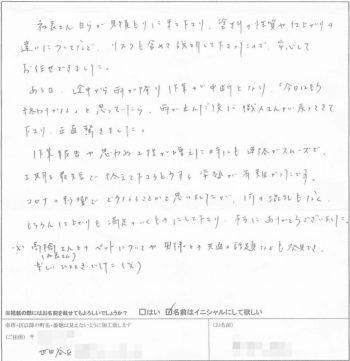 社長さん自らが見積もりに来て下さり、塗料の性質や仕上がりの
違いについてなど、リスクも含めて説明して下さったので、安心して
お任せできました。
ある日、途中から雨が降り作業が中断となり、「今日はもう
終わりかな」と思っていたら、雨が止んだ後に職人さんが戻ってきて
下さり、正直驚きました。
作業報告や思わぬ工程が増えた時にも連絡がスムーズで、
工期も最短で終えて下さろうとする姿勢が有難かったです。
コロナの影響でどうなることかと思いましたが、何の混乱もなく、
もちろん仕上がりも満足のいくものにして下さり、本当にありがとうございました。
高橋さんとのペットについてや興味との共通の話題なども発見でき、
(社長さん)
楽しいひとときでした(笑)
※掲載の際にはお名前を載せてもよろしいでしょうか? □はい ☑名前はイニシャルにして欲しい
(ご住所) 〒
(お名前)
世田谷区